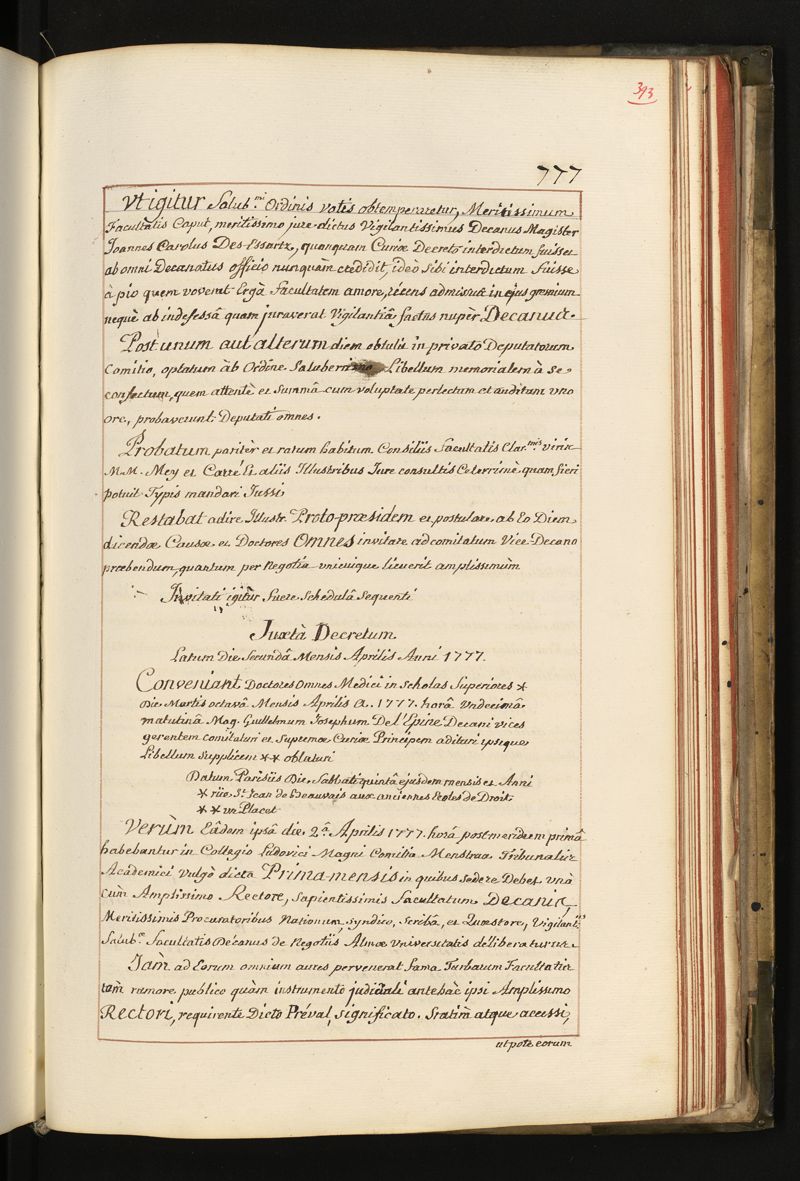 393
777
Vt igitur Salub.mi Ordinis votis obtemperaretur, Meritissimum
Facultatis Caput, meritissimo jure dictus Vigilantissimus Decanus Magister
Joannes Carolus Des-Essartz, quanquam Curiæ Decreto interdictum fuisset
ab omni Decanatus officio nunquàm credidit, ideò sibi interdictum Fuisse
à pio quem voverat Ergà Facultatem amore, recens admissus in ejus gremium
nequè ab indefessâ quam juraverat Vigilantiâ factus nupèr Decanus.
Post unum aut alterum diem obtuli in privato Deputatorum
Comitio, optatum àb Ordine Saluberrimo Libellum memorialem à se
confectum, quem attentè et Summâ cum voluptate perlectum et auditum uno
ore, probaverunt Deputati omnes.
Probatum paritèr et ratum habitum Consiliis Facultatis Clar.mis viris
M.M. Mey et Carré Et aliis Illustribus Jure consultis Celerrimè quam fieri
potuit Typis mandari Jussi
Restabat adire Illustr. Proto-præsidem et postulare ab Eo Diem
dicendæ Causæ et Doctores Omnes invitare ad comitatum Vice-Decano
præbendum, quantum per Negotia unicuique licuerit amplissimùm
Invitati igitur Fuere Schedulâ Sequenti
Juxtà Decretum
Latum Die Secundâ Mensis Aprilis Anni 1777.
Conveniant Doctores Omnes Medici in Scholas Superiores *
Die Martis octavâ Mensis Aprilis a. 1777. horâ Undecimâ
matutinâ Mag. Guillelmum Josephum De l'Epine Decani vices
gerentem comitaturi et Supremæ Curiæ Principem adituri ipsique
Libellum Supplicem ** oblaturi
Datum Parisiis Die Sabbati quintâ ejusdem mensis et Anni
* rüe St. Jean de Beauvais aux anciennes Ecoles de Droit.
** un Placet
Verùm Eâdem ipsâ die 2.â Aprilis 1777. horâ postmeridiem primâ
habebantur in Collegio Ludovici Magni Comitia Menstrua Tribunalis
Academici Vulgò dicta Prima-mensis in quibus Sedere Debet unà
cùm Amplissimo Rectore, Sapientissimis Facultatum Decanis,
Meritissimis Procuratoribus Nationum, Syndico, Scribâ, et Quæstore, Vigilantis.s
Salub.æ Facultatis Decanus de Negotiis Almæ Universitatis deliberaturus.
Jàm ad Eorum omnium aures pervenerat Fama Turbarum Facultatis
tàm rumore publico quàm instrumento judiciali antehàc ipsi Amplissimo
Rectori, requirente Dicto Préval, significato. Statim atque accessi,
utpote eorum